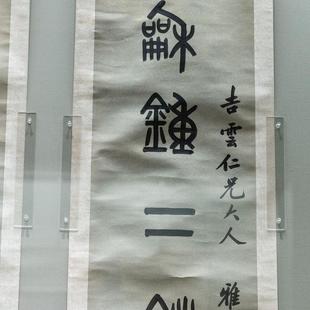 吉雲仁兄大人 雅
龢鐘二